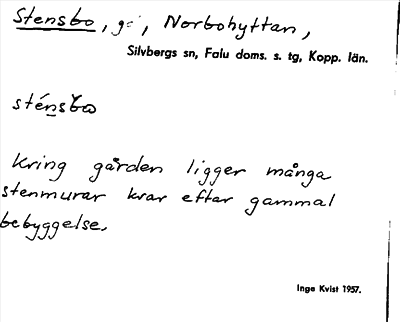 Stensbo, gd, Norbohyttan,
Silvbergs sn, Falu doms. s. tg, Kopp. län.
sténsbω
Kring gården ligger många
stenmurar kvar efter gammal
bebyggelse.
Inge Kvist 1957.